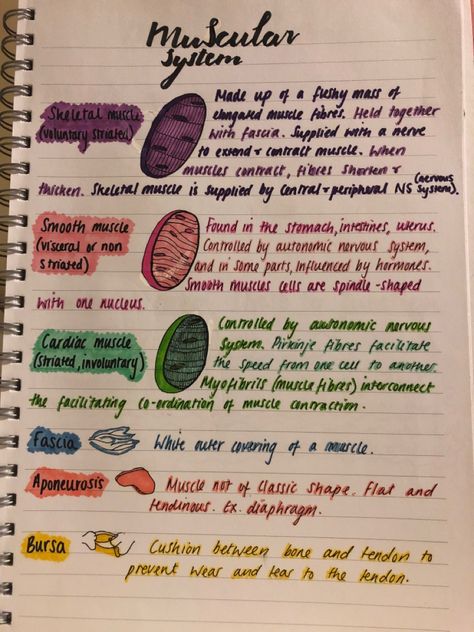 Muscular
System
Skeletal muscle
(voluntary striated)
Made up of a fleshy mass of
elongated muscle fibres. Held together
with fascia. Supplied with a nerve
to extend + contract muscle. When
muscles contract, fibres shorten +
thicken. Skeletal muscle is supplied by central + peripheral NS (nervous system).
Smooth muscle
(visceral or non
striated)
Found in the stomach, intestines, uterus.
Controlled by autonomic nervous system,
and in some parts, influenced by hormones.
Smooth muscles cells are spindle-shaped
with one nucleus.
Cardiac muscle
(striated, involuntary)
Controlled by autonomic nervous
system. Pirkinje fibres facilitate
the speed from one cell to another.
Myofibrils (muscle fibres) interconnect
the facilitating co-ordination of muscle contraction.
Fascia
White outer covering of a muscle.
Aponeurosis
Muscle not of classic shape. Flat and
tendinous. Ex. diaphragm.
Bursa
Cushion between bone and tendon to
prevent wear and tear to the tendon.